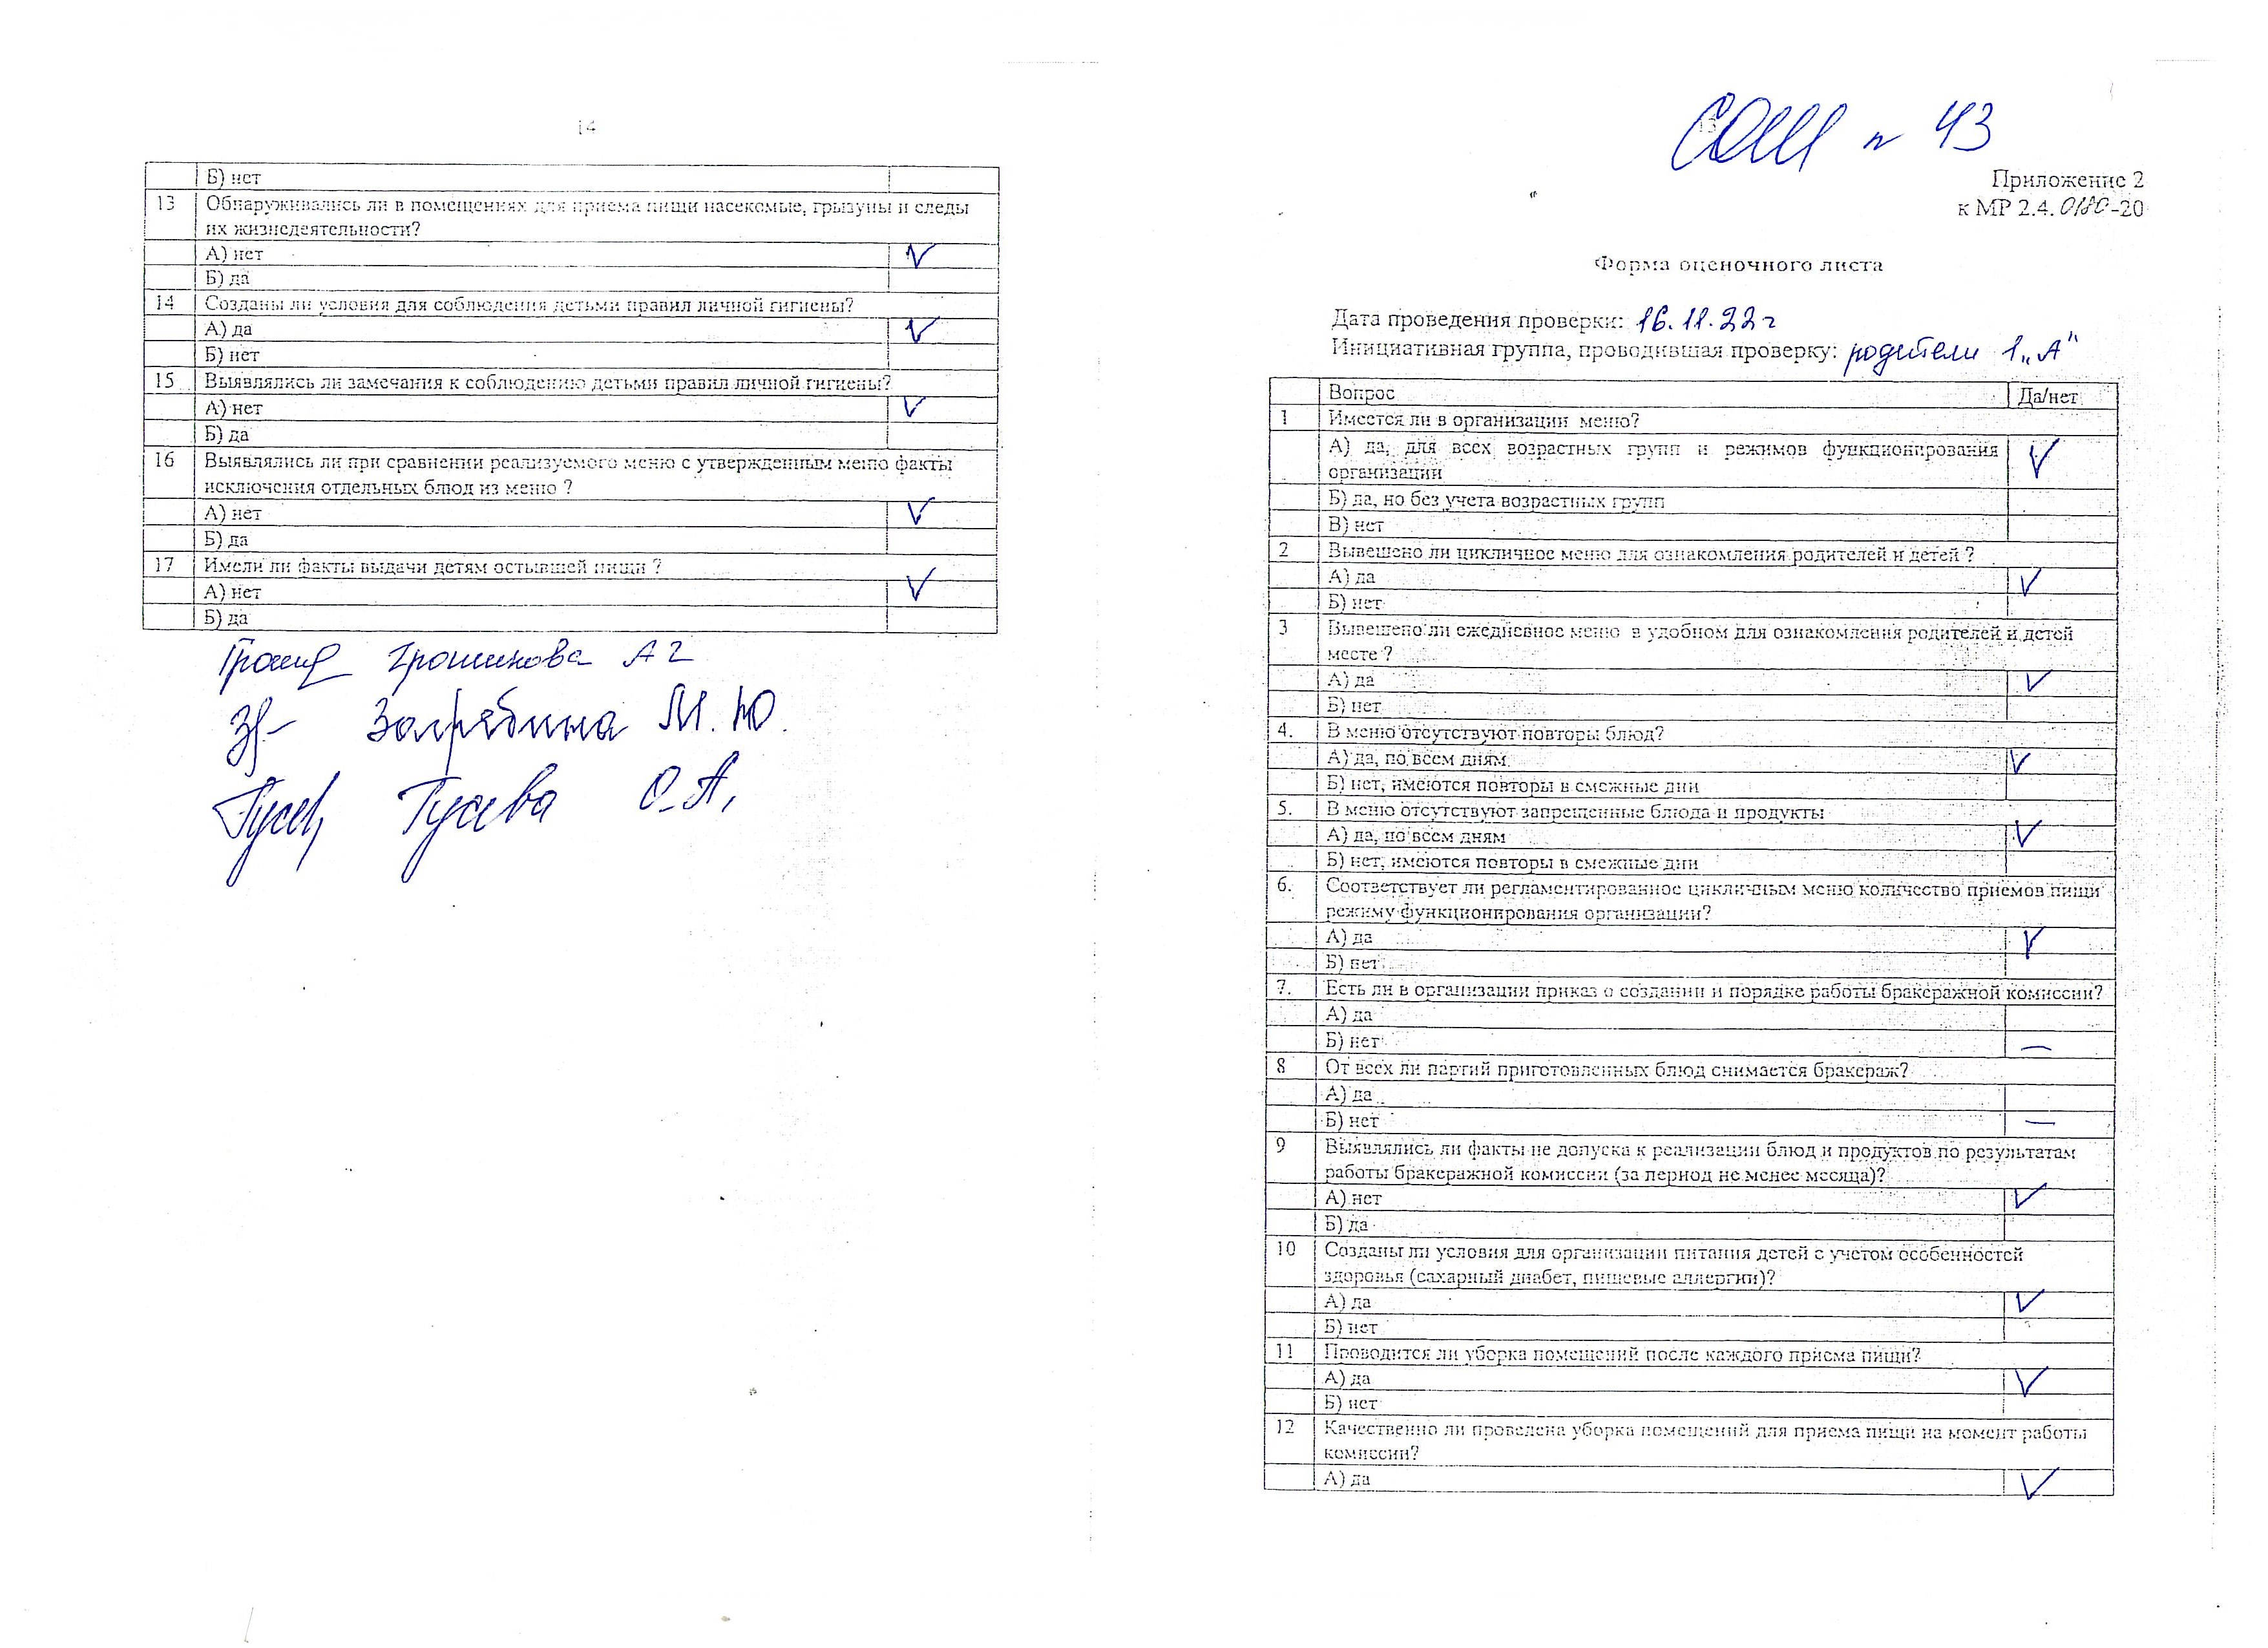 14
Б) нет
13 Обнаруживались ли в помещениях для приема пищи насекомые, грызуны и следы
их жизнедеятельности?
А) нет V
Б) да
14 Созданы ли условия для соблюдения детьми правил личной гигиены?
А) да V
Б) нет
15 Выявлялись ли замечания к соблюдению детьми правил личной гигиены?
А) нет V
Б) да
16 Выявлялись ли при сравнении реализуемого меню с утвержденным меню факты
исключения отдельных блюд из меню ?
А) нет V
Б) да
17 Имели ли факты выдачи детям остывшей пищи ?
А) нет V
Б) да
Грошикова А Г
Загребина М.Ю.
Гусева О.А.
СОШ n 43
Приложение 2
к МР 2.4.0180-20
Форма оценочного листа
Дата проведения проверки: 16.11.22г
Инициативная группа, проводившая проверку: родители 1 „А"
Вопрос Да/нет
1 Имеется ли в организации меню?
А) да, для всех возрастных групп и режимов функционирования
организации V
Б) да, но без учета возрастных групп
В) нет
2 Вывешено ли цикличное меню для ознакомления родителей и детей ?
А) да V
Б) нет
3 Вывешено ли ежедневное меню в удобном для ознакомления родителей и детей
месте ?
А) да V
Б) нет
4. В меню отсутствуют повторы блюд?
А) да, по всем дням V
Б) нет, имеются повторы в смежные дни
5. В меню отсутствуют запрещенные блюда и продукты
А) да, по всем дням V
Б) нет, имеются повторы в смежные дни
6. Соответствует ли регламентированное цикличным меню количество приемов пищи
режиму функционирования организации?
А) да V
Б) нет
7. Есть ли в организации приказ о создании и порядке работы бракеражной комиссии?
А) да
Б) нет —
8 От всех ли партий приготовленных блюд снимается бракераж?
А) да
Б) нет —
9 Выявлялись ли факты не допуска к реализации блюд и продуктов по результатам
работы бракеражной комиссии (за период не менее месяца)?
А) нет V
Б) да
10 Созданы ли условия для организации питания детей с учетом особенностей
здоровья (сахарный диабет, пищевые аллергии)?
А) да V
Б) нет
11 Проводится ли уборка помещений после каждого приема пищи?
А) да V
Б) нет
12 Качественно ли проведена уборка помещений для приема пищи на момент работы
комиссии?
А) да V